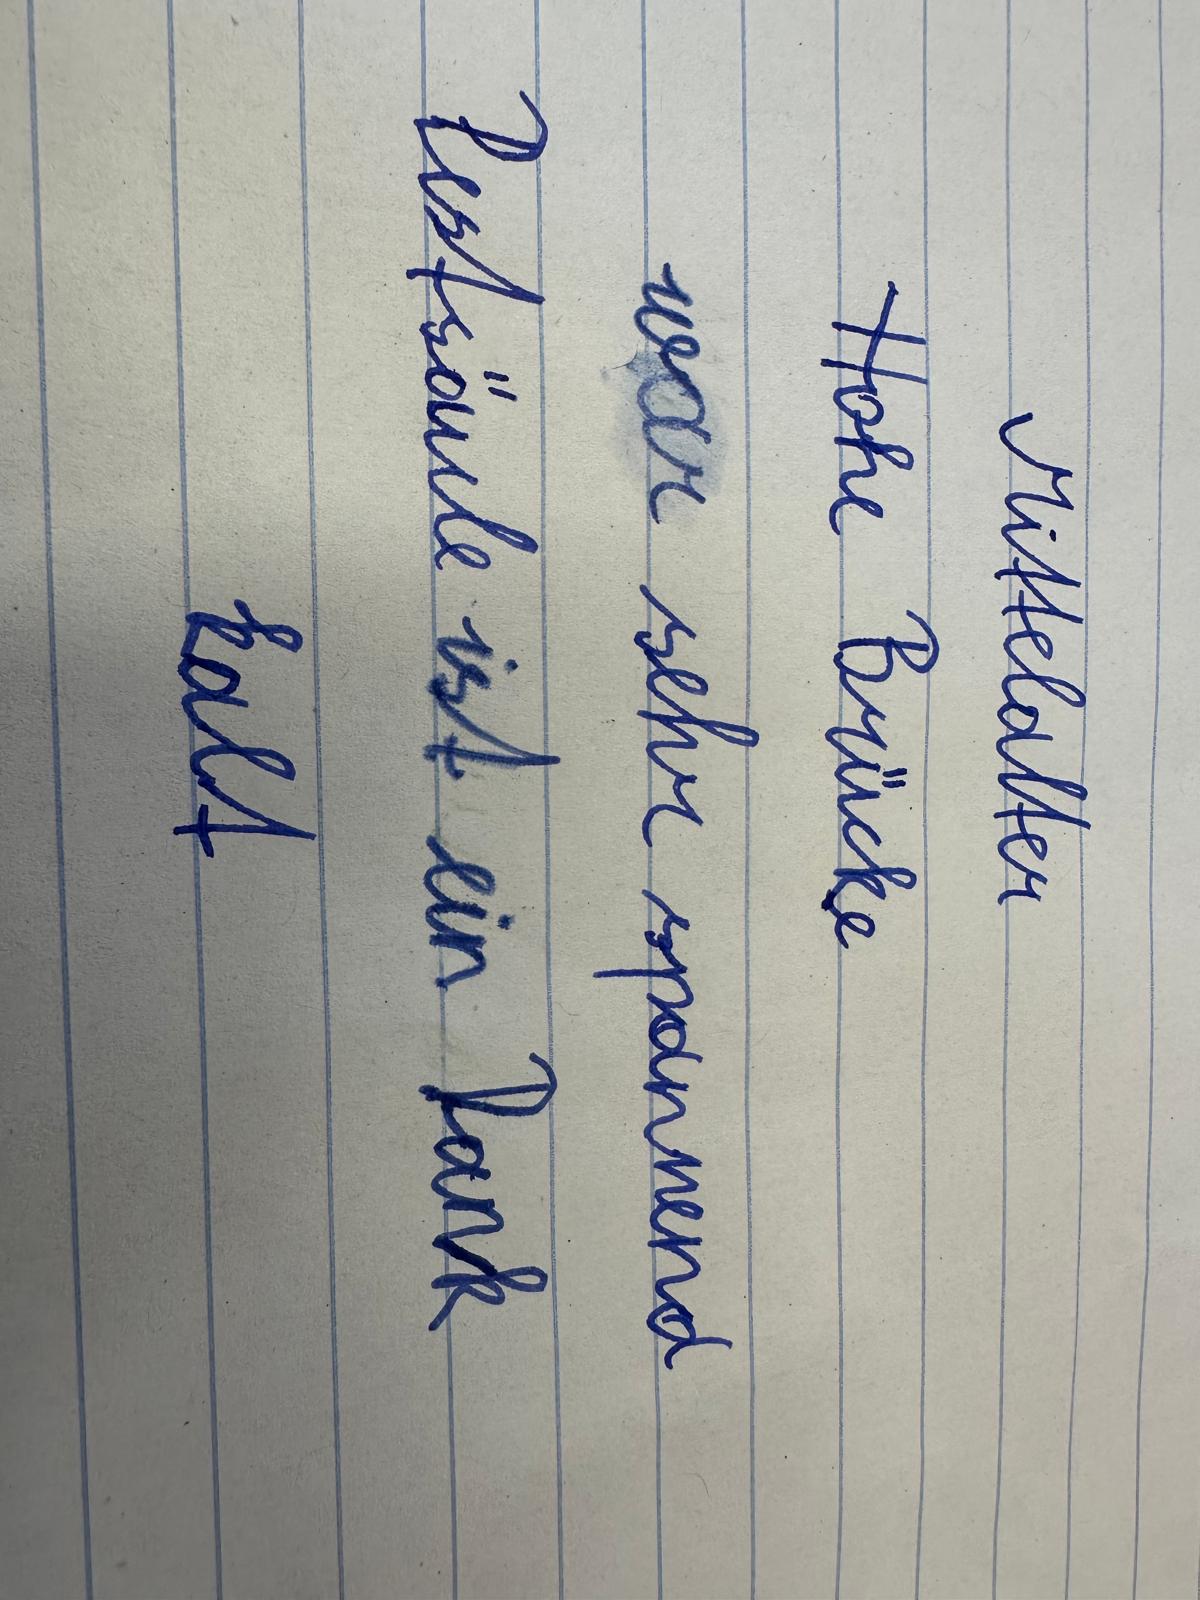 Mittelalter
Hohe Brücke
war sehr spannend
Pestsäule ist ein Dank
kalt